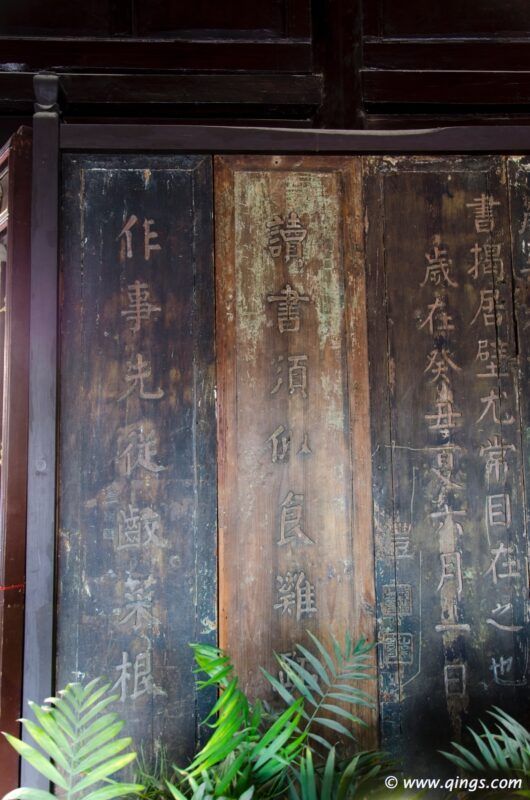 書揭居壁尤常目在之也
歲在癸丑夏六月十一日
讀書須似食雞
作事先從齩菜根
© www.qings.com